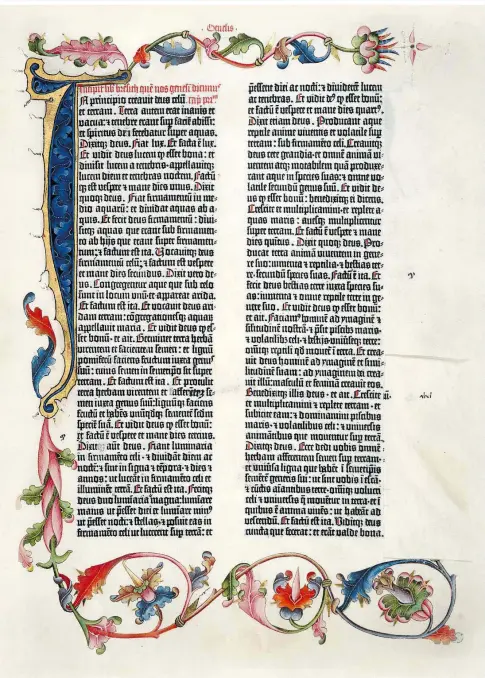 Genesis
Incipit liber bresith quē nos genesim dicimus
In principio creavit deus celū
et terram. Terra autem erat inanis et
vacua: et tenebre erant sup faciē abissi:
et spiritus dñi ferebatur super aquas.
Dixitq; deus. Fiat lux. Et facta ē lux.
Et vidit deus lucem qꝫ esset bona: et
divisit lucem a tenebris-appellavitq;
lucem diem et tenebras noctem. Factūq;
q; est vespere et mane dies unus. Dixit
quoq; deus. Fiat firmamentū in me-
dio aquarū: et dividat aquas ab a-
quis. Et fecit deus firmamentū: divi-
sitq; aquas que erant sub firmamen-
to ab hijs que erant super firmamen-
tum: et factum est ita. Vocavitq; deus
firmamentū celū: et factum est vespere
et mane dies secundus. Dixit vero de-
us. Congregentur aque que sub celo
sunt in locum unū et appareat arida.
Et factum est ita. Et vocavit deus ari-
dam terram: cōgregacionesq; aquarū
appellavit maria. Et vidit deus qꝫ es-
set bonū-et ait. Germinet terra herbam
virentem et facientem semen: et lignū
pomiferū faciens fructum iuxta genus
suū: cuius semen in semetipso sit super
terram. Et factum est ita. Et protulit
terra herbam virentem et
semen iuxta genus suū: lignūq; faciens
fructū et habēs unūqdq; sementē scdm
speciē suā. Et vidit deus qꝫ esset bonū:
et factū ē vespere et mane dies tercius.
Dixit autē deus. Fiant luminaria
in firmamēto celi-et dividāt diem ac
noctē: et sint in signa et tēpora-et dies et
annos: ut luceāt in firmamēto celi et
illuminēt terrā. Et factū est ita. Fecitq;
deus duo luminaria magna: luminare
maius ut pesset diei et luminare min
ut pesset nocti: et stellas-et posuit eas in
firmamēto celi ut lucerent sup terrā: et
pessent diei ac nocti: et dividerēt lucem
ac tenebras. Et vidit deus qꝫ esset bonū:
et factū ē vespere et mane dies quartus.
Dixit etiam deus. Producant aque
reptile anime viventis et volatile sup
terram: sub firmamēto celi. Creavitq;
deus cete grandia-et omnē animā vi-
ventem atq; motabilem quā produxe-
rant aque in species suas: et omne vo-
latile secundū genus suū. Et vidit de-
us qꝫ esset bonū: benedixitq; ei dicens.
Crescite et multiplicamini-et replete a-
quas maris: avesq; multiplicentur
super terram. Et factū ē vespere et mane
dies quintus. Dixit quoq; deus. Pro-
ducat terra animā viventem in gene-
re suo: iumenta et reptilia-et bestias ter-
re secundū species suas. Factū ē ita. Et
fecit deus bestias terre iuxta species su-
as: iumenta et omne reptile terre in ge-
nere suo. Et vidit deus qꝫ esset bonū:
et ait. Faciamus hominē ad ymaginē et
similitudinē nostrā-et psit piscibus maris-
et volatilibus celi-et bestijs universeq; terre:
omniq; reptili qd movetur ī terra. Et crea-
vit deus hominē ad ymaginē et simi-
litudinē suam: ad ymaginem dei crea-
vit illū: masculū et feminā creavit eos.
Benedixitq; illis deus-et ait. Crescite
et multiplicamini et replete terram-et
subicite eam: et dominamini piscibus
maris-et volatilibus celi: et universis
animātibus que moventur sup terrā.
Dixitq; deus. Ecce dedi vobis omnē
herbam afferentem semen sup terram-
et universa ligna que habēt ī semetipsis
sementē generis sui: ut sint vobis ī escā-
et cūctis aiantibus terre-omniq; volucri
celi et universis q moventur in terra-et ī
quibus ē anima vivēs: ut habeāt ad
vescendū. Et factū est ita. Viditq; deus
cuncta que fecerat: et erāt valde bona.